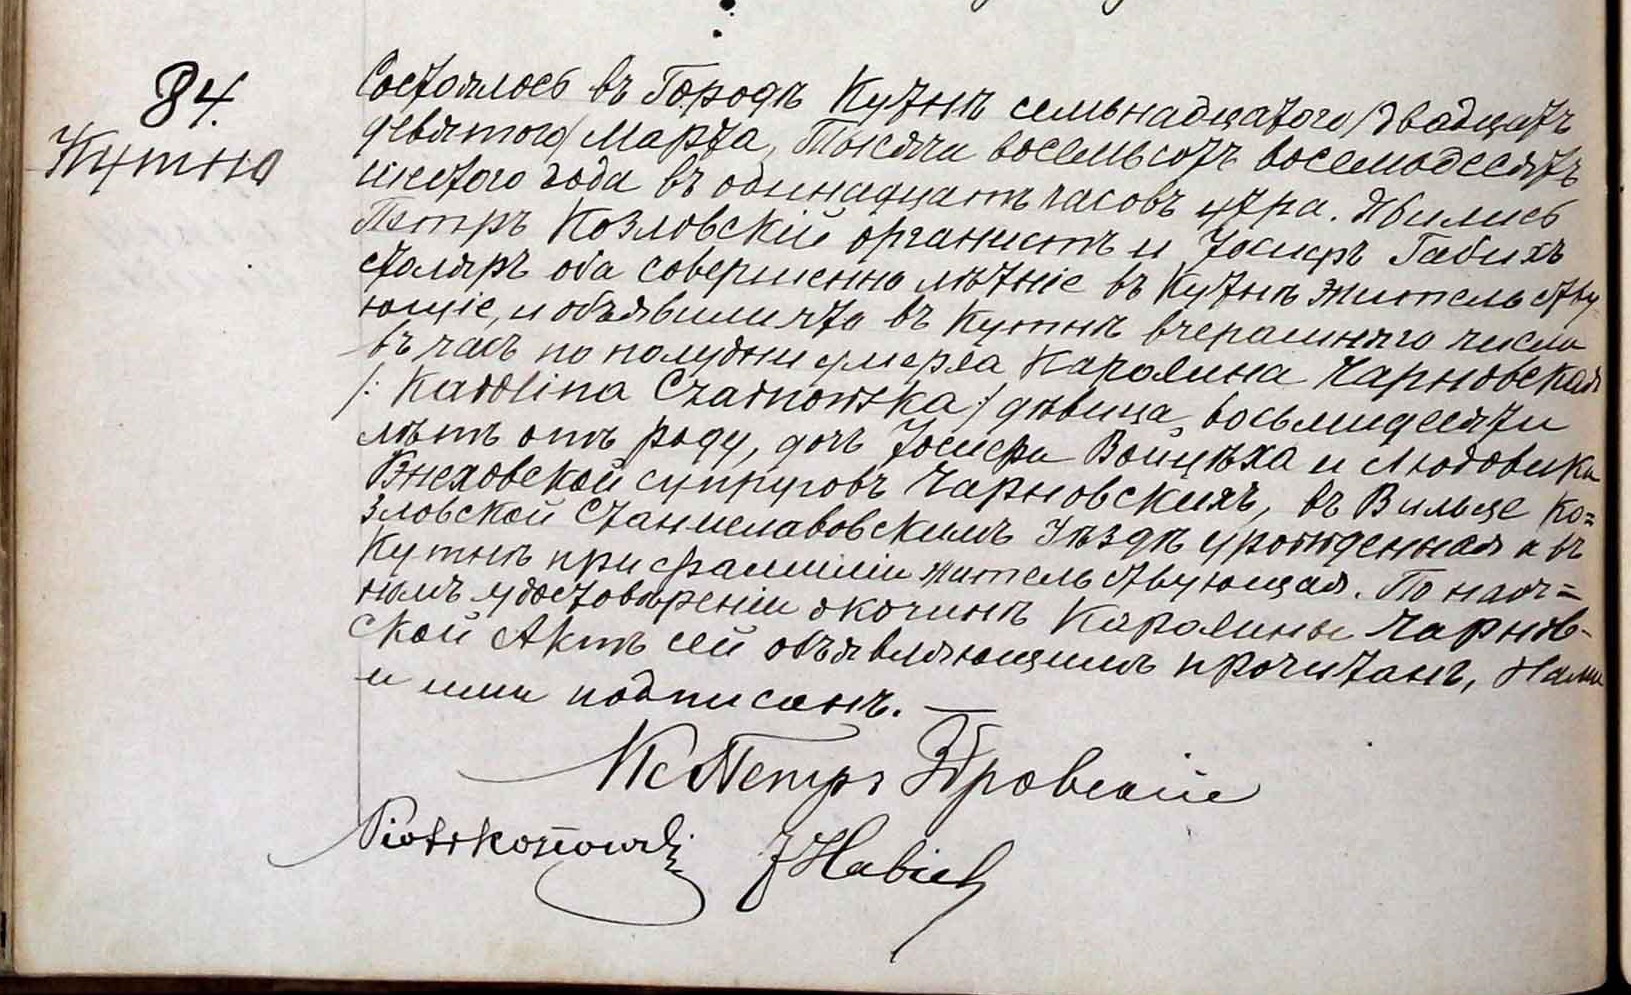 84.
Кутно
Состоялось въ Городѣ Кутнѣ семьнадцатого/двадцать
девятого/Марта, Тысяча восемьсотъ восемодесятъ
шестого года въ одинадцать часовъ утра. Явились
Петръ Козловскій органистъ и Іосифъ Габихъ
столяръ оба совершеннолѣтніе въ Кутнѣ жительству-
ющіе, и объявили что въ Кутнѣ вчерашняго числа
въ часъ по полудни умерла Каролина Чарновская
/: Karolina Czarnowska :/ дѣвица, восьмидесяти
лѣтъ отъ роду, дочь Іосифа Войцѣха и Людовики
супруговъ Чарновскихъ, въ Вильце Ко=
зловской Станиславовскимъ Уѣздѣ урожденная а въ
Кутнѣ при фамиліи жительствующая. По наоч=
номъ удостовѣреніи о кочинѣ Каролины Чарнов-
ской Актъ сей объявляющимъ прочитанъ, Нами
и ими подписанъ. —
Кс Петръ
Piotr Kozłowski J Habich